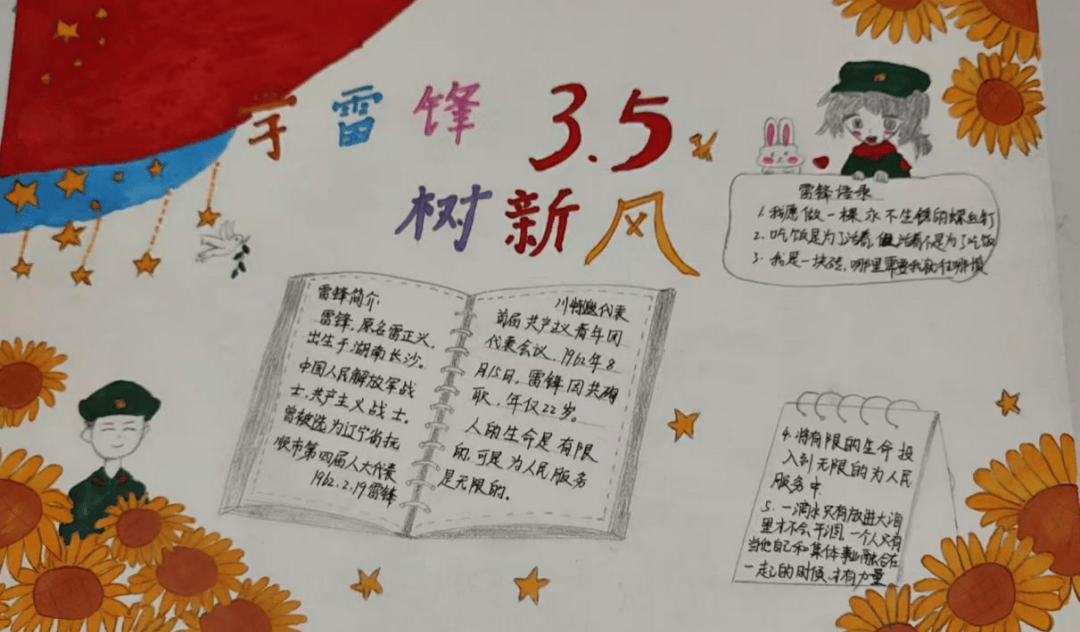 学雷锋 3.5
树新风
雷锋语录
1.我愿做一棵永不生锈的螺丝钉
2.吃饭是为了活着,但活着不是为了吃饭
3.我是一块砖,哪里需要我就往哪搬
雷锋简介:
雷锋,原名雷正义,
出生于湖南长沙。
中国人民解放军战
士,共产主义战士。
曾被选为辽宁省抚
顺市第四届人大代表
1962.2.19雷锋
代表
首届共产主义青年团
代表会议,1962年8
月15日,雷锋因共殉
职,年仅22岁。
人的生命是有限
的,可是为人民服务
是无限的。
4.将有限的生命投
入到无限的为人民
服务中.
5.一滴水只有放进大海
里才不会干涸,一个人只有
当他自己和集体事业融合在
一起的时候,才有力量